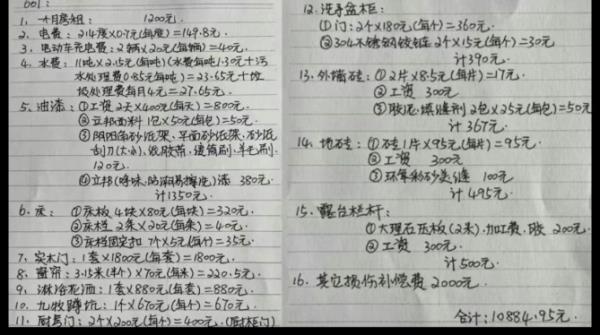 001:
1. 一个月房租: 1200元.
2. 电费: 214度×0.7元(每度)=149.8元.
3. 电动车充电费: 2辆×20元(每辆)=40元.
4. 水费: 11吨×2.15元(每吨)(水费每吨1.30元+污
水处理费0.85元每吨)=23.65元+垃
圾处理费每月4元=27.65元.
5. 油漆: ①工资2天×400元(每天)=800元.
②立邦面料1包×50元(每包)=50元
③阴阳角砂纸架、平面砂纸架、砂纸
刮刀(大小)、收胶带、滚筒刷、羊毛刷
120元.
④立邦(净味、防霉易擦洗)漆 380元.
计1350元.
6. 床: ①床板4块×80元(每块)=320元.
②床档2条×20元(每条)=40元.
③床档固定扣7个×5元(每个)=35元.
7. 实木门: 1套×1800元(每套)=1800元.
8. 窗帘: 3.15米(半个)×70元(每米)=220.5元.
9. 淋浴花洒: 1套×880元(每套)=880元.
10. 九牧蹲坑: 1个×670元(每个)=670元.
11. 厨房门: 2个×200元(每个)=400元. (厨柜门)
12. 洗手盆柜:
①门: 2个×180元(每个)=360元.
②304不锈钢铰链2个×15元(每个)=30元
计390元.
13. 外墙砖: ①2片×8.5元(每片)=17元.
②工资 300元
③胶泥、填缝剂2包×25元(每包)=50元
计367元.
14. 地砖: ①砖1片×95元(每片)=95元.
②工资 300元
③环氧彩砂美缝 100元
计495元.
15. 露台栏杆:
①大理石压板(2米).加工费、胶 200元.
②工资 300元.
计500元.
16. 其它损伤补偿费2000元.
合计: 10884.95元.